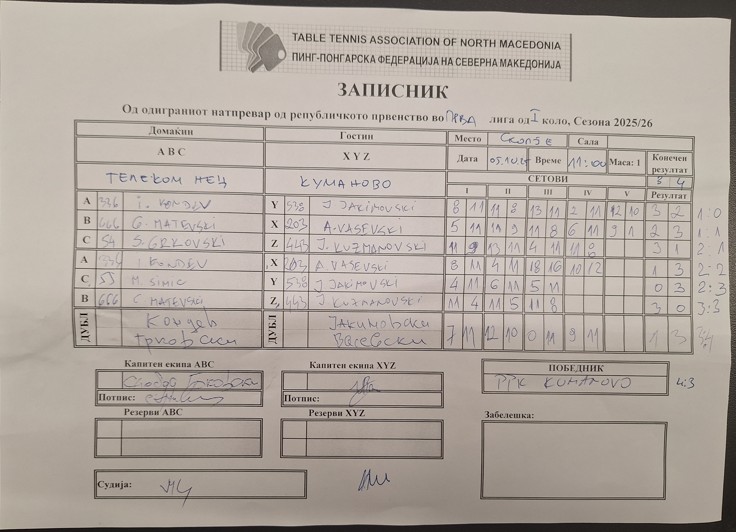 TABLE TENNIS ASSOCIATION OF NORTH MACEDONIA
ПИНГ-ПОНГАРСКА ФЕДЕРАЦИЈА НА СЕВЕРНА МАКЕДОНИЈА
ЗАПИСНИК
Од одиграниот натпревар од републичкото првенство во ПРВА лига од I коло, Сезона 2025/26
Домаќин Гостин Место СКОПЈЕ Сала
A B C X Y Z Дата Време 11:00 Маса: 1 Конечен резултат
ТЕЛЕКОМ НЕЦ КУМАНОВО СЕТОВИ 3 4
I II III IV V Резултат
A I. KONDEV Y 538 J JAKIMOVSKI 8 11 11 8 13 11 2 11 12 10 3 2 1:0
B 666 G. MATEVSKI X 203 A. VASEVSKI 5 11 11 9 11 8 6 11 9 11 2 3 1:1
C 54 S. GRKOVSKI Z 443 J. KUZMANOVSKI 11 9 13 11 4 11 11 3 1 2:1
A I KONDEV X 203 A. VASEVSKI 8 11 4 11 18 16 10 12 1 3 2:2
C M. SIMIC Y 538 J JAKIMOVSKI 4 11 6 11 5 11 0 3 2:3
B 666 G. MATEVSKI Z 443 J KUZMANOVSKI 11 4 11 5 11 8 3 0 3:3
ДУБЛ Кондев ДУБЛ Јакимовски 7 11 12 10 0 11 9 11 1 3 3:4
Грковски Васевски
Капитен екипа ABC Капитен екипа XYZ ПОБЕДНИК
PPK KUMANOVO 4:3
Потпис: Потпис:
Резерви ABC Резерви XYZ Забелешка:
Судија: